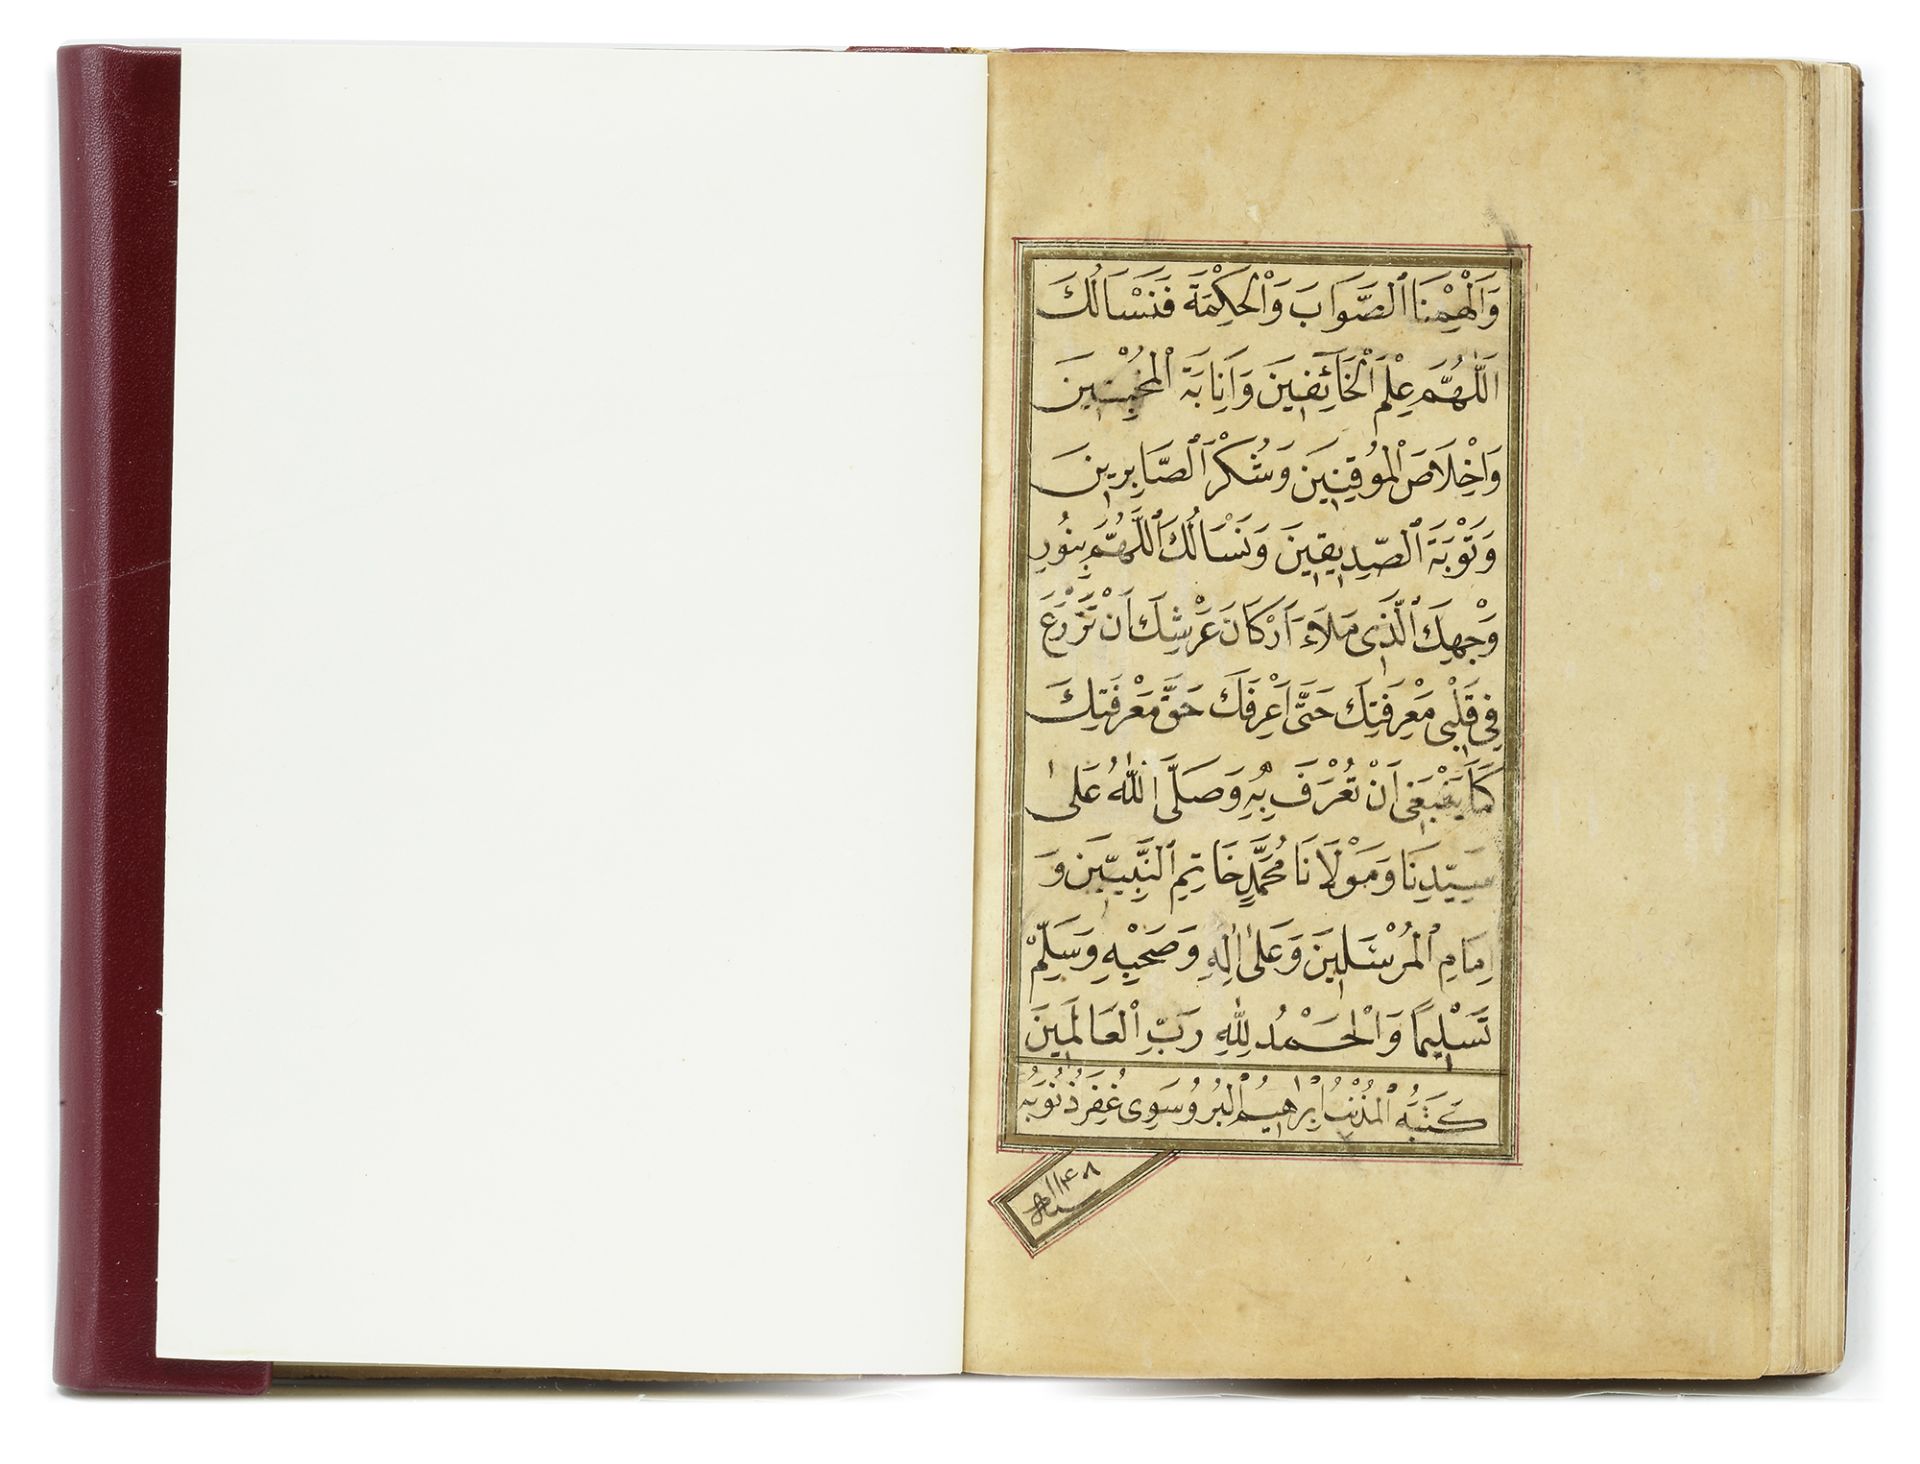 وَاَلْهِمْنَا الصَّوَابَ وَالْحِكْمَةَ فَنَسْاَلُكَ
اَللّٰهُمَّ عِلْمَ الْخَائِفِينَ وَاِنَابَةَ الْمُخْبِتِينَ
وَاِخْلَاصَ الْمُوقِنِينَ وَشُكْرَ الصَّابِرِينَ
وَتَوْبَةَ الصِّدِيقِينَ وَنَسْاَلُكَ اَللّٰهُمَّ بِنُورِ
وَجْهِكَ الَّذِى مَلَاءَ اَرْكَانَ عَرْشِكَ اَنْ تَزْرَعَ
فِى قَلْبِى مَعْرِفَتِكَ حَتَّى اَعْرِفَكَ حَقَّ مَعْرِفَتِكَ
كَمَا يَنْبَغِى اَنْ تُعْرَفَ بِهِ وَصَلَّى اللّٰهُ عَلٰى
سَيِّدِنَا وَمَوْلَانَا مُحَمَّدٍ خَاتِمِ النَّبِيِّينَ وَ
اِمَامِ الْمُرْسَلِينَ وَعَلٰى اٰلِهِ وَصَحْبِهِ وَسَلِّمْ
تَسْلِيمًا وَالْحَمْدُ لِلّٰهِ رَبِّ الْعَالَمِينَ
كَتَبَهُ الْمُذْنِبُ اِبْرٰهِيمُ الْبُرُوسَوِى غُفِرَ ذُنُوبُهُ
سنة ١١٤٨